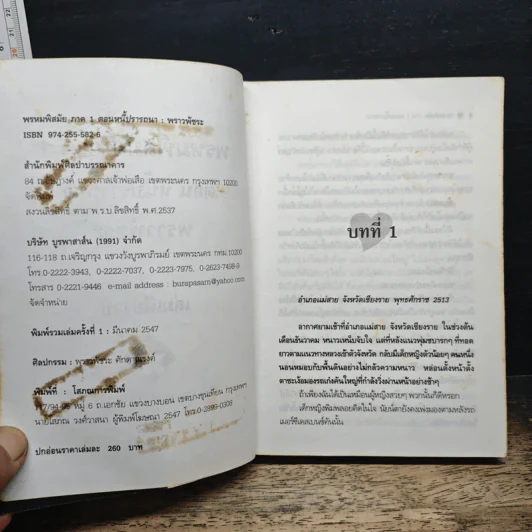 พรหมพิสมัย ภาค 1 ตอนหนี้ปรารถนา : พราวพัชระ
ISBN 974-255-582-6
สำนักพิมพ์ศิลปาบรรณาคาร
84 แขวงศาลเจ้าพ่อเสือ เขตพระนคร กรุงเทพฯ 10200
จัดพิมพ์
สงวนลิขสิทธิ์ ตาม พ.ร.บ.ลิขสิทธิ์ พ.ศ.2537
บริษัท บูรพาสาส์น (1991) จำกัด
116-118 ถ.เจริญกรุง แขวงวังบูรพาภิรมย์ เขตพระนคร กทม.10200
โทร.0-2222-3943, 0-2222-7037, 0-2223-7975, 0-2623-7488-9
โทรสาร 0-2221-9446 e-mail address : burapasarn@yahoo.com
จัดจำหน่าย
พิมพ์รวมเล่มครั้งที่ 1 : มีนาคม 2547
ศิลปกรรม :
พิมพ์ที่ : โสภณการพิมพ์
หมู่ 6 ถ.เอกชัย แขวงบางบอน เขตบางขุนเทียน กรุงเทพฯ
นายโสภณ วงศ์วาสนา ผู้พิมพ์โฆษณา 2547 โทร.0-2899-0308
ปกอ่อนราคาเล่มละ 260 บาท
บทที่ 1
อำเภอแม่สาย จังหวัดเชียงราย พุทธศักราช 2513
อากาศยามเช้าที่อำเภอแม่สาย จังหวัดเชียงราย ในช่วงต้น
เดือนธันวาคม หนาวเหน็บจับใจ แต่ที่หลังแนวพุ่มชบารกๆ ที่ทอด
ยาวตามแนวทางหลวงเข้าตัวจังหวัด กลับมีเด็กหญิงตัวน้อยๆ คนหนึ่ง
นอนหมอบกับพื้นดินอย่างไม่กลัวความหนาว หล่อนตั้งหน้าตั้ง
ตาชะเง้อมองรถเก๋งคันใหญ่ที่กำลังวิ่งผ่านหน้าอย่างช้าๆ
ถ้าเพียงฉันได้เป็นเหมือนผู้หญิงสวยๆ พวกนั้นก็ดีหรอก
เด็กหญิงพิมพลอยคิดในใจ นัยน์ตายังคงเพ่งมองตามหลังรถ
เมอร์ซีเดสเบนซ์คันนั้น